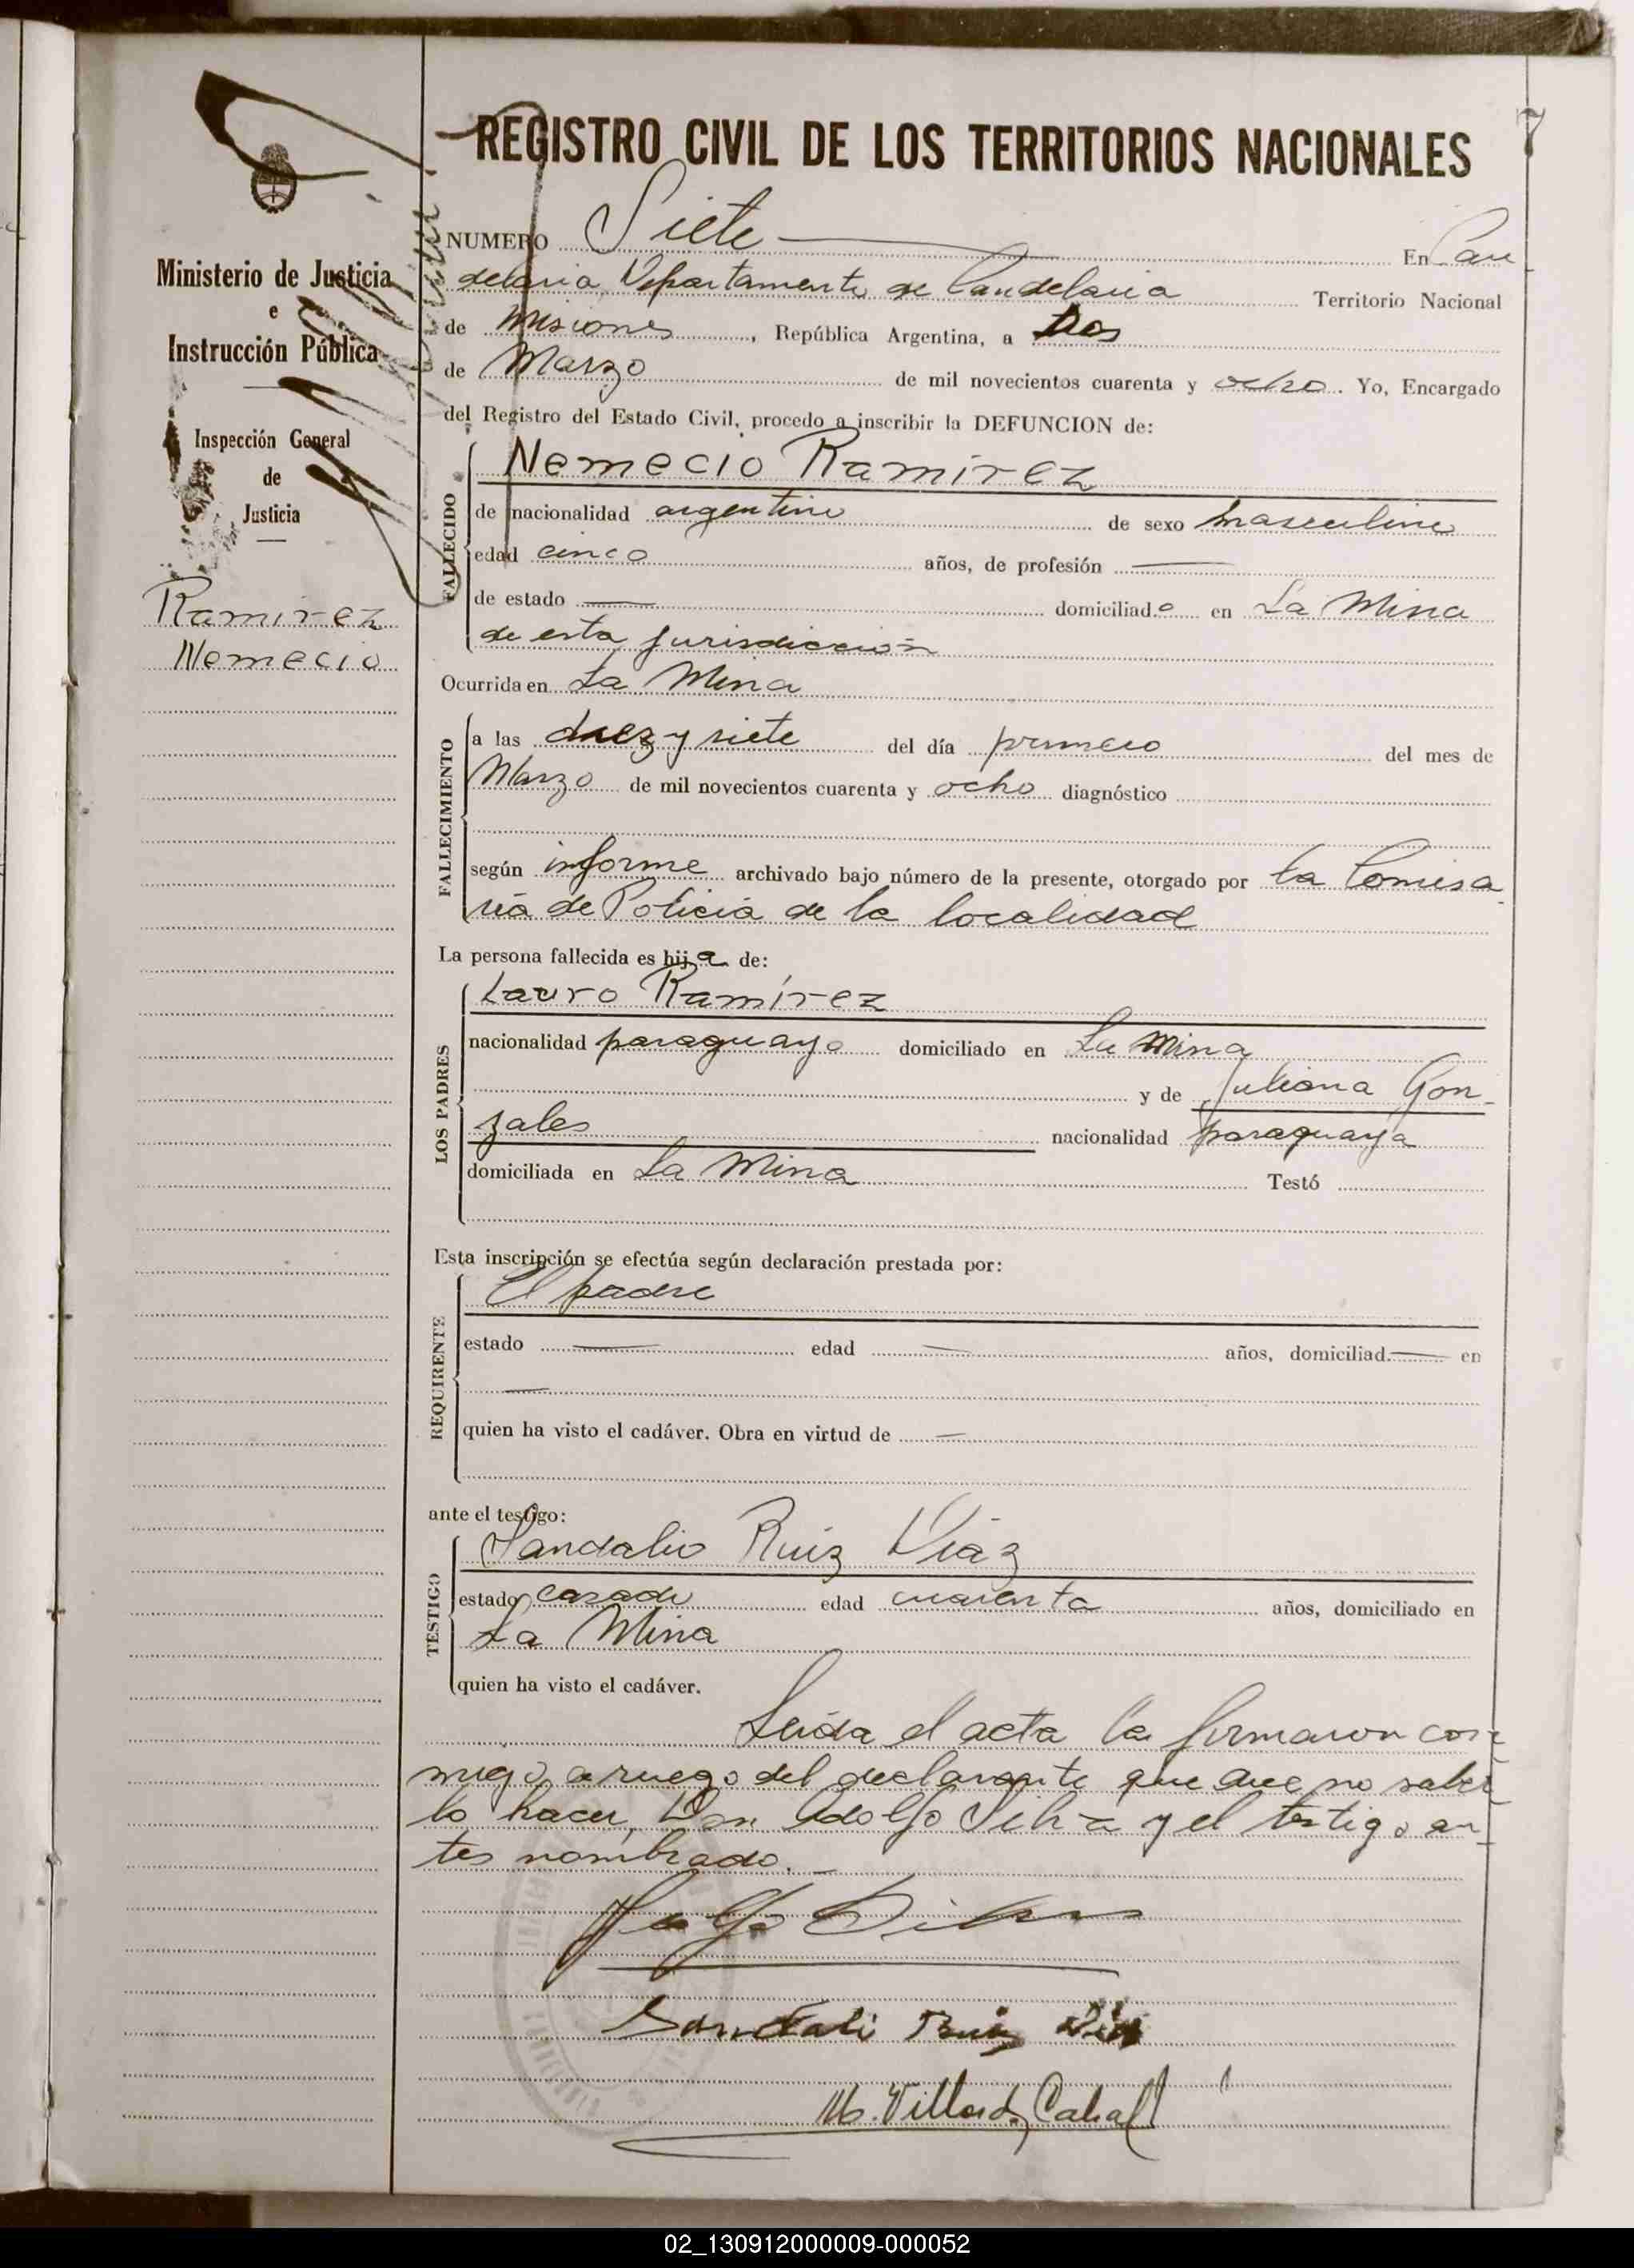 7
REGISTRO CIVIL DE LOS TERRITORIOS NACIONALES
Ministerio de Justicia
e
Instrucción Pública
Inspección General
de
Justicia
Ramirez
Nemecio
NUMERO Siete En Can
delaria Departamento de Candelaria Territorio Nacional
de Misiones, República Argentina, a Dos
de Marzo de mil novecientos cuarenta y ocho. Yo, Encargado
del Registro del Estado Civil, procedo a inscribir la DEFUNCION de:
FALLECIDO
Nemecio Ramirez
de nacionalidad argentino de sexo masculino
edad cinco años, de profesión —
de estado — domiciliado en La Mina
de esta jurisdicción
Ocurrida en La Mina
FALLECIMIENTO
a las diez y siete del día primero del mes de
Marzo de mil novecientos cuarenta y ocho diagnóstico
según informe archivado bajo número de la presente, otorgado por la Comisa
ría de Policía de la localidad
La persona fallecida es hija de:
LOS PADRES
Lauro Ramírez
nacionalidad paraguayo domiciliado en La Mina
y de Juliana Gon-
zales nacionalidad paraguaya
domiciliada en La Mina Testó
Esta inscripción se efectúa según declaración prestada por:
REQUIRENTE
El padre
estado — edad — años, domiciliad — en
—
quien ha visto el cadáver. Obra en virtud de —
ante el testigo:
TESTIGO
Sandalio Ruiz Diáz
estado casado edad cuarenta años, domiciliado en
La Mina
quien ha visto el cadáver.
Leída el acta la firmaron con
migo, a ruego del declarante que dice no saber
lo hacer, Don Adolfo Silva y el testigo an-
tes nombrado.
Sandali Ruiz Diaz
M. Villord. Cabal
02_130912000009-000052